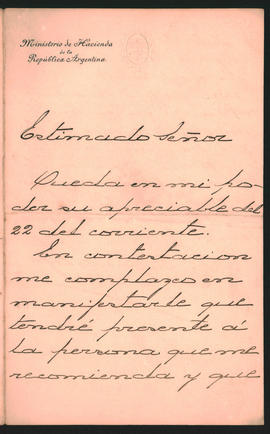 Ministerio de Hacienda
de la
República Argentina
Estimado Señor
Queda en mi po-
der su apreciable del
22 del corriente.
En contestacion
me complazco en
manifestarle que
tendré presente á
la persona que me
recomienda y que